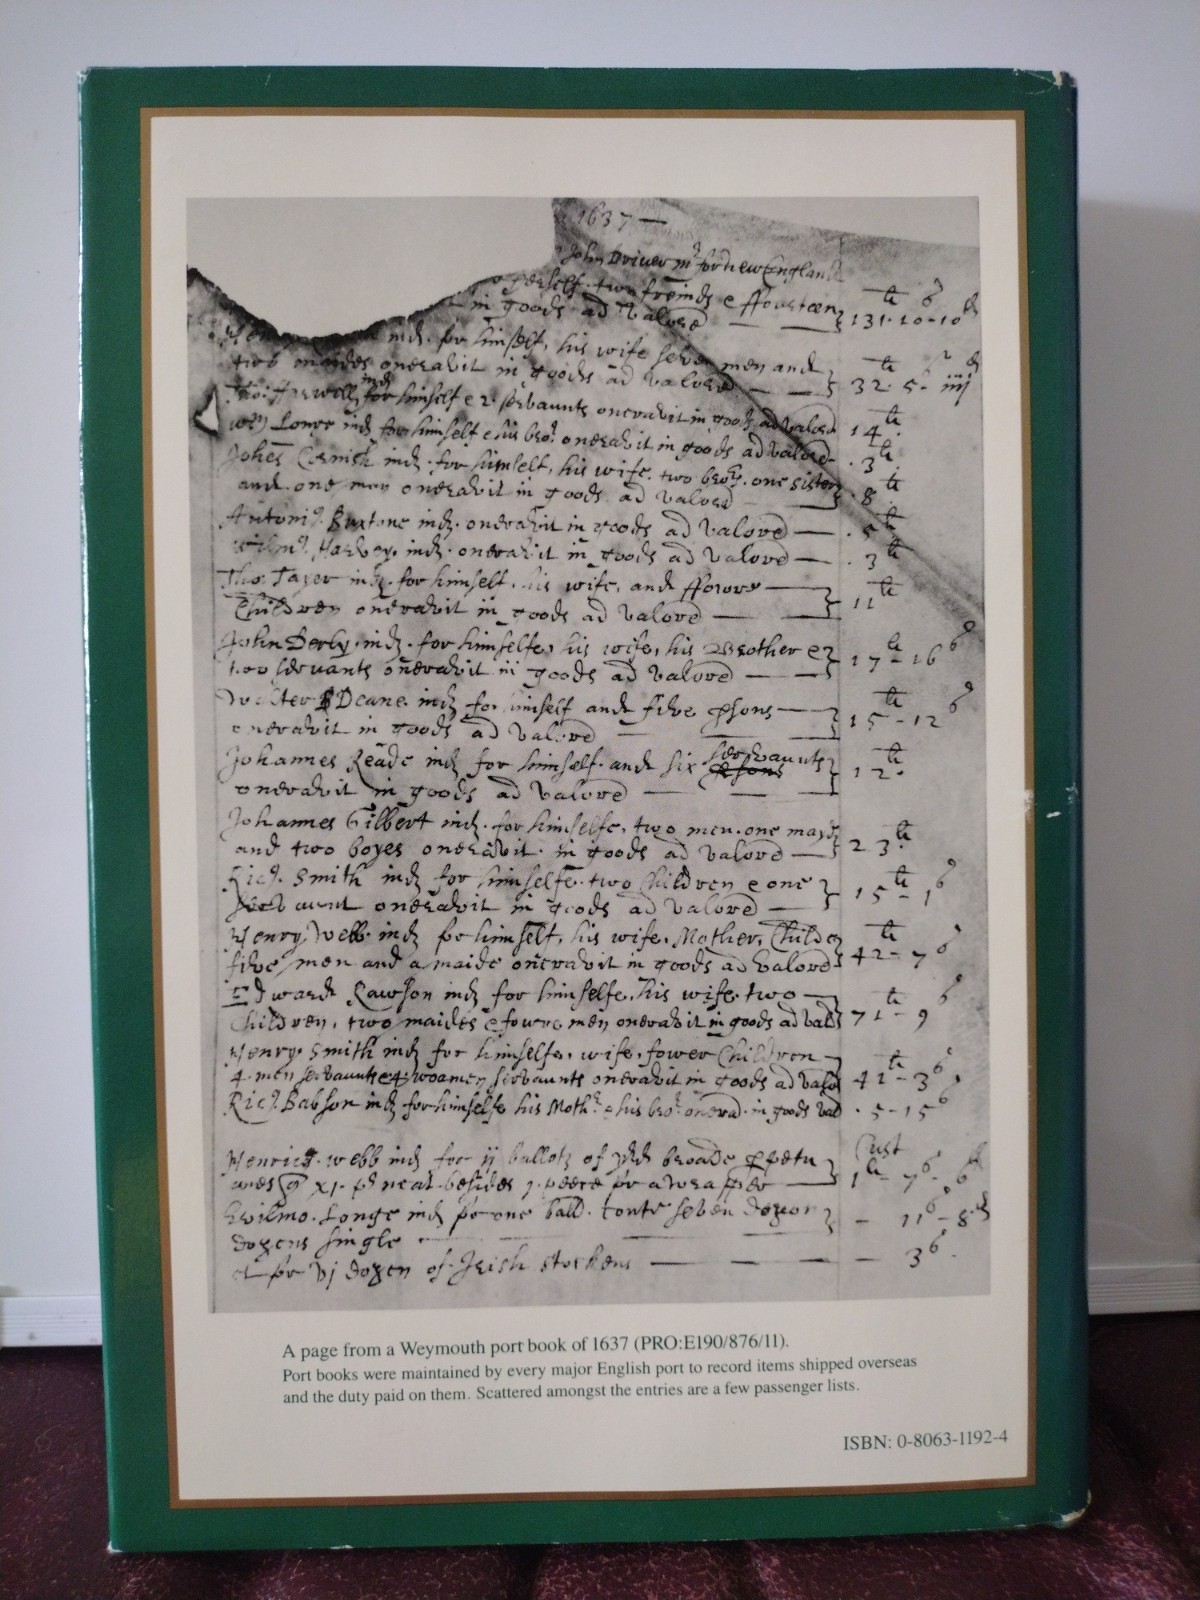 1637 —
John Driver mr for new England
in goods ad valore — — 131-10-10
ind. for himself, his wife seven men and
two maides oneravit in goods ad valore — — 32. 5. iiij
for himself e 2 servaunts oneravit in goods ad valore 14li
Longe ind for himself e his bro: oneravit in goods ad valore .3li
Johes Cornish ind. for himself, his wife, two bro, one sister
and one men oneravit in goods ad valore .8li
Antoni Buxtone ind. oneravit in goods ad valore — .5li
Harvey. ind. oneravit in goods ad valore — .3li
Tho: ind. for himself, his wife, and ffowre —
Children oneravit in goods ad valore — 11li
John Derby. ind. for himselfe, his wife, his Brother e
two servants oneravit in goods ad valore — — 17li-16s
Walter Deane. ind. for himself and five psons —
oneravit in goods ad valore — 15li-12s
Johannes Reade ind for himself. and six servaunts
oneravit in goods ad valore — — — 12li
Johannes Gilbert ind. for himselfe, two men. one mayd
and two boyes oneravit. in goods ad valore — 23li
Ric. Smith ind for himselfe. two Children e one
oneravit in goods ad valore — 15li-1s
Henry Webb ind for himself, his wife. Mother, Childe
five men and a maide oneravit in goods ad valore 42li-7s
Edward Rawson ind for himselfe, his wife. two —
Children, two maides e foure men oneravit in goods ad valo 71li-9s
Henry. Smith ind for himselfe, wife, fower Children —
4. men servaunts e 4 woamen servaunts oneravit in goods ad valo 41li-3s
Ric. Babson ind for himselfe his Moth. e his bro. onerad. in goods val .5-15s
Cust
webb ind for ij ballots of broade ppetu
xj. besides j. peece for a wrapper — 1li-7s-6d
Longe ind for one ball. seven dozen — 11s-8d
dozens single
et for vj dozen of Irish stockens — — — — 3s
A page from a Weymouth port book of 1637 (PRO:E190/876/11).
Port books were maintained by every major English port to record items shipped overseas
and the duty paid on them. Scattered amongst the entries are a few passenger lists.
ISBN: 0-8063-1192-4